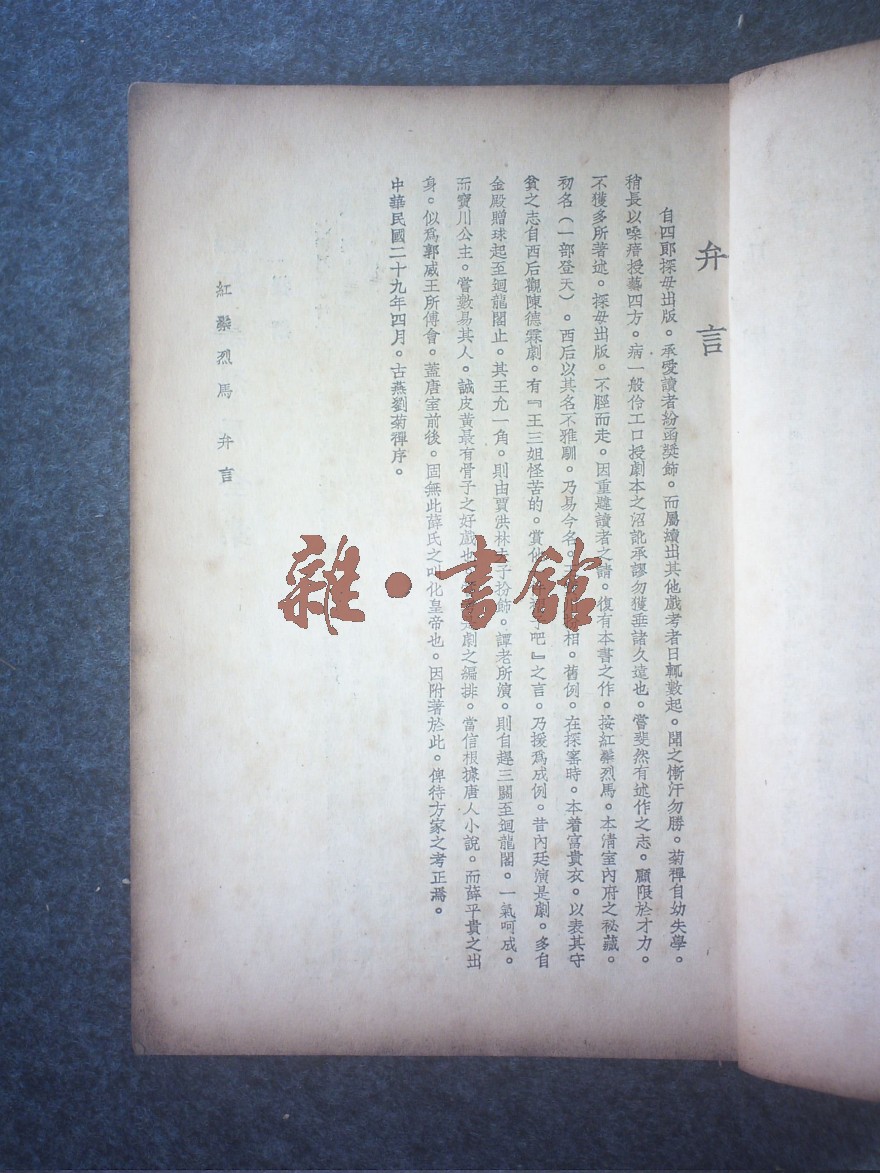 弁言
自四郎探母出版。承愛讀者紛函獎飾。而屬續出其他戲考者日輒數起。聞之慚汗勿勝。菊禪自幼失學。
稍長以嗓瘖授藝四方。病一般伶工口授劇本之沿訛承謬勿獲垂諸久遠也。嘗斐然有述作之志。顧限於才力。
不獲多所著述。探母出版。不脛而走。因重違讀者之請。復有本書之作。按紅鬃烈馬。本清室內府之秘藏。
初名（一部登天）。西后以其名不雅馴。乃易今名。相。舊例。在探窰時。本着富貴衣。以表其守
貧之志自西后觀陳德霖劇。有『王三姐怪苦的。賞他吧』之言。乃援爲成例。昔內廷演是劇。多自
金殿贈球起至迴龍閣止。其王允一角。則由賈洪林扮飾。譚老所演。則自趕三關至迴龍閣。一氣呵成。
而寶川公主。嘗數易其人。誠皮黃最有骨子之好戲也劇之編排。當信根據唐人小說。而薛平貴之出
身。似爲郭威王所傅會。蓋唐室前後。固無此薛氏之叫化皇帝也。因附著於此。俾待方家之考正焉。
中華民國二十九年四月。古燕劉菊禪序。
紅鬃烈馬 弁言
雜·書館